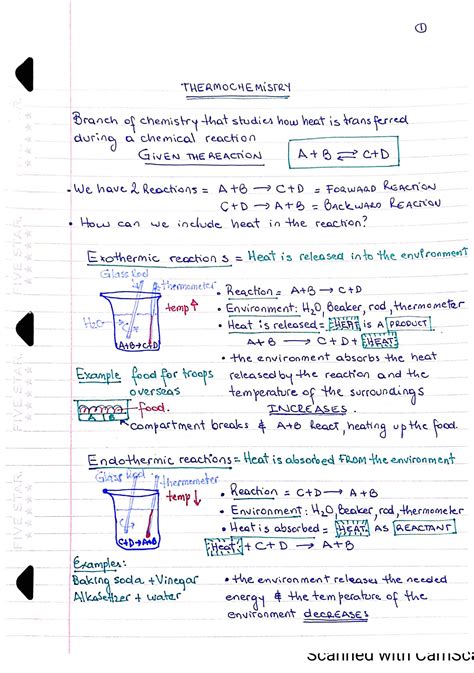 1
THERMOCHEMISTRY
Branch of chemistry that studies how heat is transferred
during a chemical reaction
GIVEN THE REACTION
A+B ⇌ C+D
- We have 2 Reactions = A+B → C+D = FORWARD REACTION
C+D → A+B = BACKWARD REACTION
• How can we include heat in the reaction?
Exothermic reactions = Heat is released into the environment
Glass Rod
thermometer
temp ↑
H2O
A+B→C+D
• Reaction = A+B → C+D
• Environment: H2O, Beaker, rod, thermometer
• Heat is released = HEAT is A PRODUCT
A+B → C+D+ HEAT
• the environment absorbs the heat
released by the reaction and the
temperature of the surroundings
INCREASES.
Example food for troops
overseas
food.
A B
compartment breaks & A+B React, heating up the food.
Endothermic reactions = Heat is absorbed FROM the environment
Glass Rod
thermometer
temp ↓
C+D→A+B
• Reaction = C+D → A+B
• Environment: H2O, Beaker, rod, thermometer
• Heat is absorbed = HEAT AS REACTANT
Heat + C+D → A+B
Examples:
Baking soda + Vinegar
Alkaseltzer + water
• the environment releases the needed
energy & the temperature of the
environment decreases
FIVE STAR.
FIVE STAR.
FIVE STAR.
FIVE STAR.
Scanned with CamSca